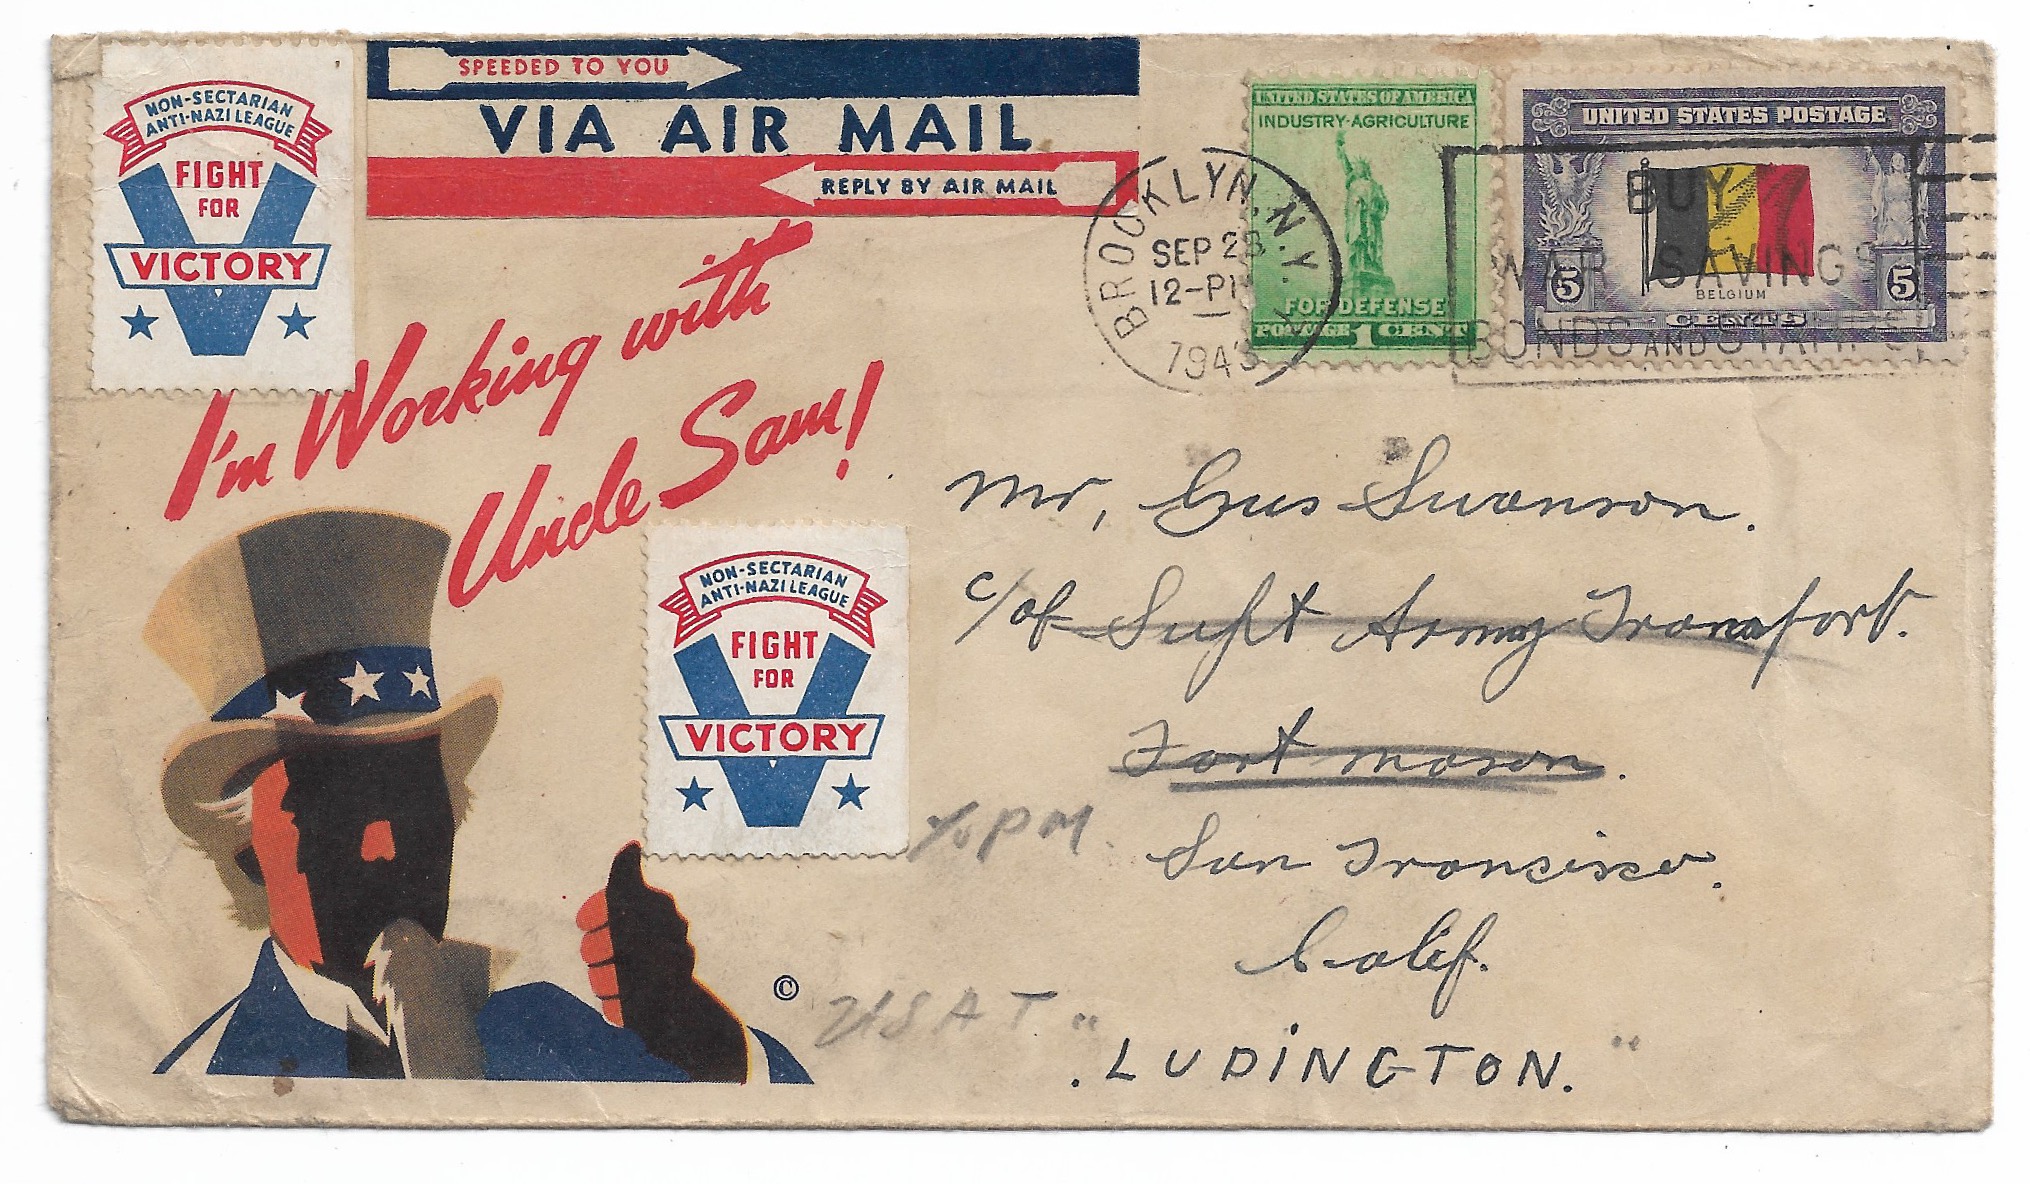 NON-SECTARIAN
ANTI-NAZI LEAGUE
FIGHT
FOR
VICTORY
SPEEDED TO YOU
VIA AIR MAIL
REPLY BY AIR MAIL
I'm Working with
Uncle Sam!
NON-SECTARIAN
ANTI-NAZI LEAGUE
FIGHT
FOR
VICTORY
©
BROOKLYN, N.Y.
SEP 28
12-PM
1943
UNITED STATES OF AMERICA
INDUSTRY-AGRICULTURE
FOR DEFENSE
POSTAGE 1 CENT
UNITED STATES POSTAGE
5 5
BELGIUM
CENTS
BUY
WAR SAVINGS
BONDS AND STAMPS
Mr, Gus Swanson.
c/of Supt Army Transport.
Fort Mason.
San Francisco.
Calif.
PM
USAT "
. LUDINGTON. "